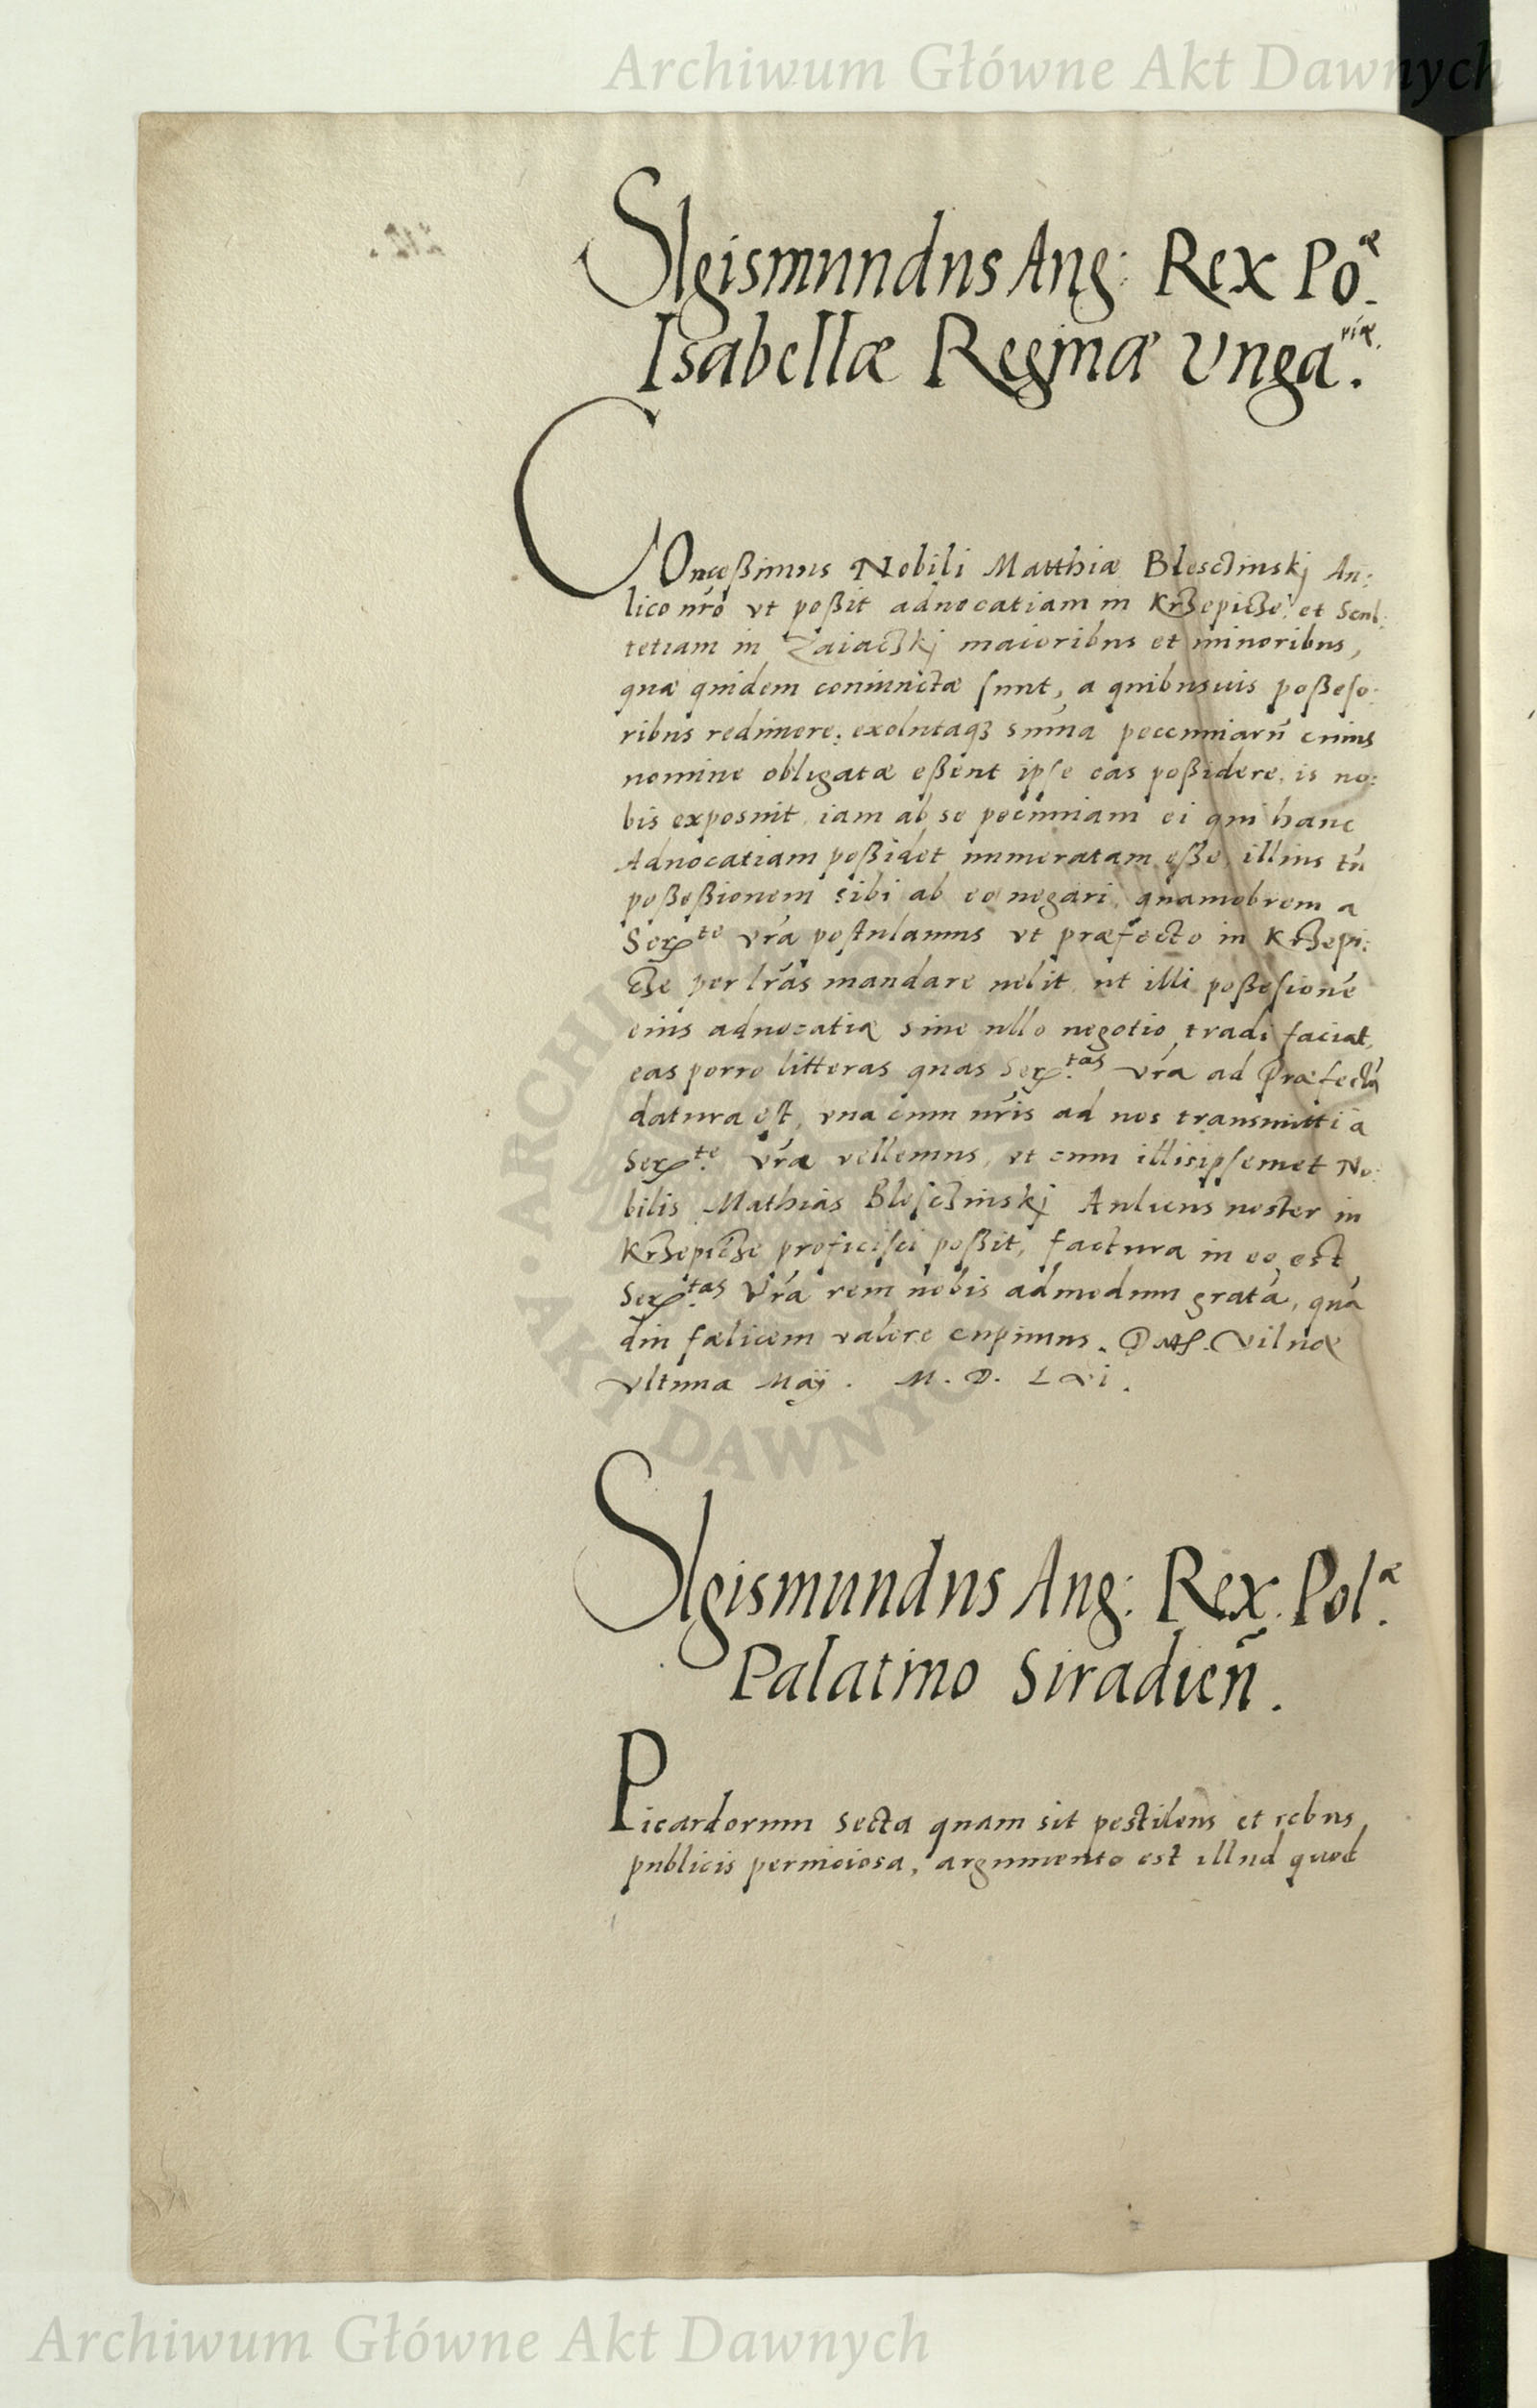 Archiwum Główne Akt Dawnych
SIgismundus Aug: Rex Po.æ
Isabellæ Reginæ Vnga.riæ
COnceßimus Nobili Matthiæ Blesczinskj Au:
lico nr̃o vt poßit aduocatiam in Krzepicze, et Scul:
tetiam in Zaiaczkj maioribus et minoribus,
quæ quidem coniunctæ sunt, a quibusuis poßeso:
ribus redimere, exolutaqꝫ sum̃a peccuniarũ cuius
nomine obligatæ eßent ipse eas poßidere, is no:
bis exposuit, iam ab se pecuniam ei qui hanc
Aduocatiam poßidet numeratam eße, illius tñ
poßeßionem sibi ab eo negari, quamobrem a
Serte vr̃a postulamus vt præfecto in Krzepi:
cze per lr̃as mandare uelit, ut illi poßesionẽ
eius aduocatiæ sine ullo negotio tradi faciat,
eas porro litteras quas Ser.tas vr̃a ad Præfectũ
datura est, vna cum nr̃is ad nos transmitti à
Ser.te vr̃a vellemus, vt cum illis ipsemet No:
bilis Mathias Blesczinskj Aulicus noster in
Krzepicze proficisci poßit, factura in eo est
Ser.tas Vr̃a rem nobis admodum gratã, quã
diu fælicem valere cupimus. Dat. Vilnæ
vltima Maij. M. D. Lvi.
SIgismundus Aug: Rex. Pol.æ
Palatino Siradień.
Picardorum secta quam sit pestilens et rebus
publicis perniciosa, argumento est illud quod
ARCHIWUM
AKT DAWNYCH
Archiwum Główne Akt Dawnych